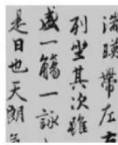 湍暎帶左右
列坐其次雖
盛一觴一詠
是日也天朗